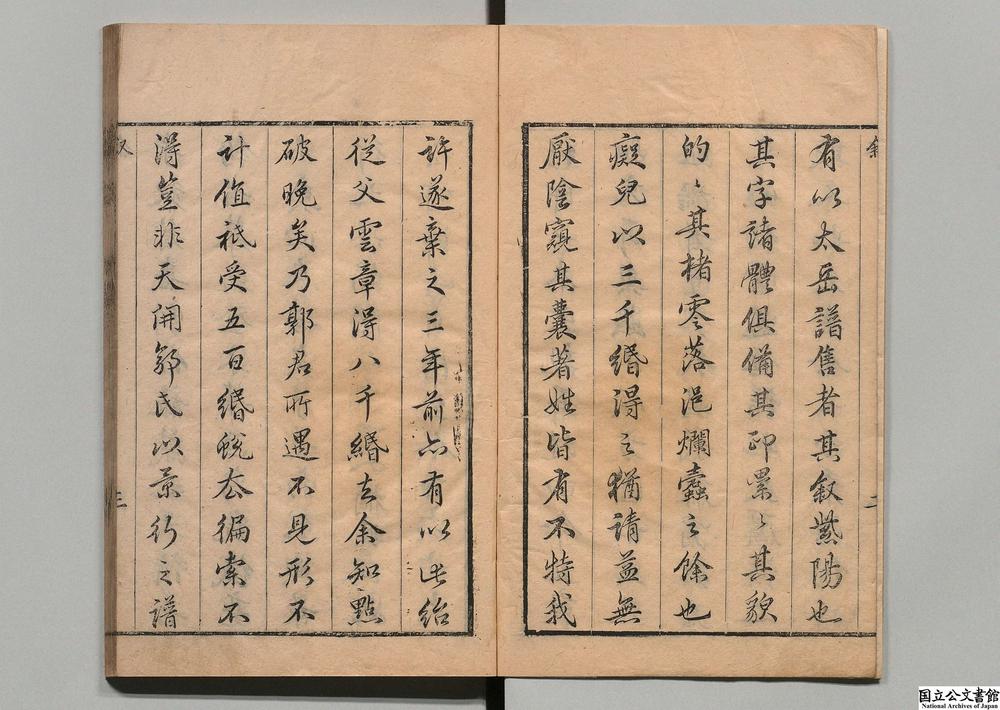 有以太岳譜售者其叙紫陽也
其字諸體俱備其印累〻其貌
的〻其楮零落浥爛蠹之餘也
癡兒以三千緡得之猶請益無
厭陰窺其囊著姓皆有不特我
許遂棄之三年前亦有以此紿
從父雲章得八千緡去余知點
破晚矣乃郭君所遇不見形不
計值祇受五百緡蛻去徧索不
得豈非天開郭氏以景行之譜
叙
二
三
国立公文書館
National Archives of Japan